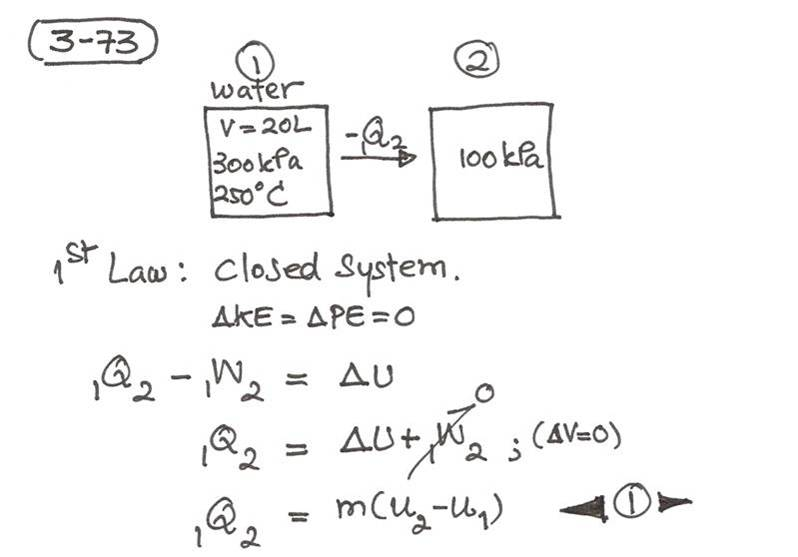 3-73
① ②
water
V=20L
300kPa
250°C
-₁Q₂
100kPa
1st Law: Closed System.
ΔKE=ΔPE=0
₁Q₂ - ₁W₂ = ΔU
₁Q₂ = ΔU + ₁W₂ 0 ; (ΔV=0)
₁Q₂ = m(u₂-u₁) ①